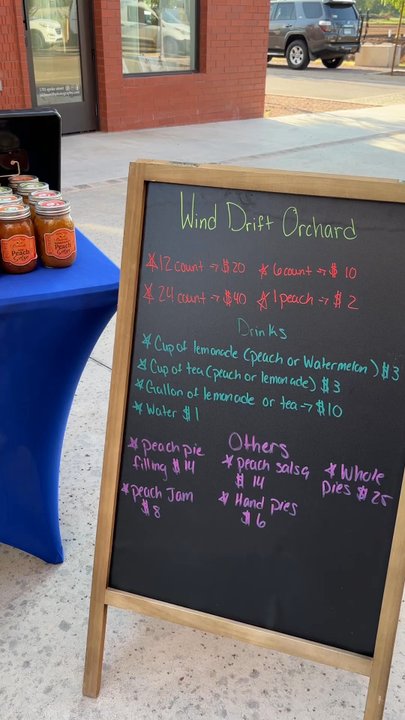 Wind Drift Orchard
* 12 count → $20 * 6 count → $10
* 24 count → $40 * 1 peach → $2
Drinks
* Cup of lemonade (peach or Watermelon) $3
* Cup of tea (peach or lemonade) $3
* Gallon of lemonade or tea → $10
* Water $1
Others
* peach pie
filling $14
* peach salsa
$14
* Whole
pies $25
* peach Jam
$8
* Hand pies
$6
Peach
Peach